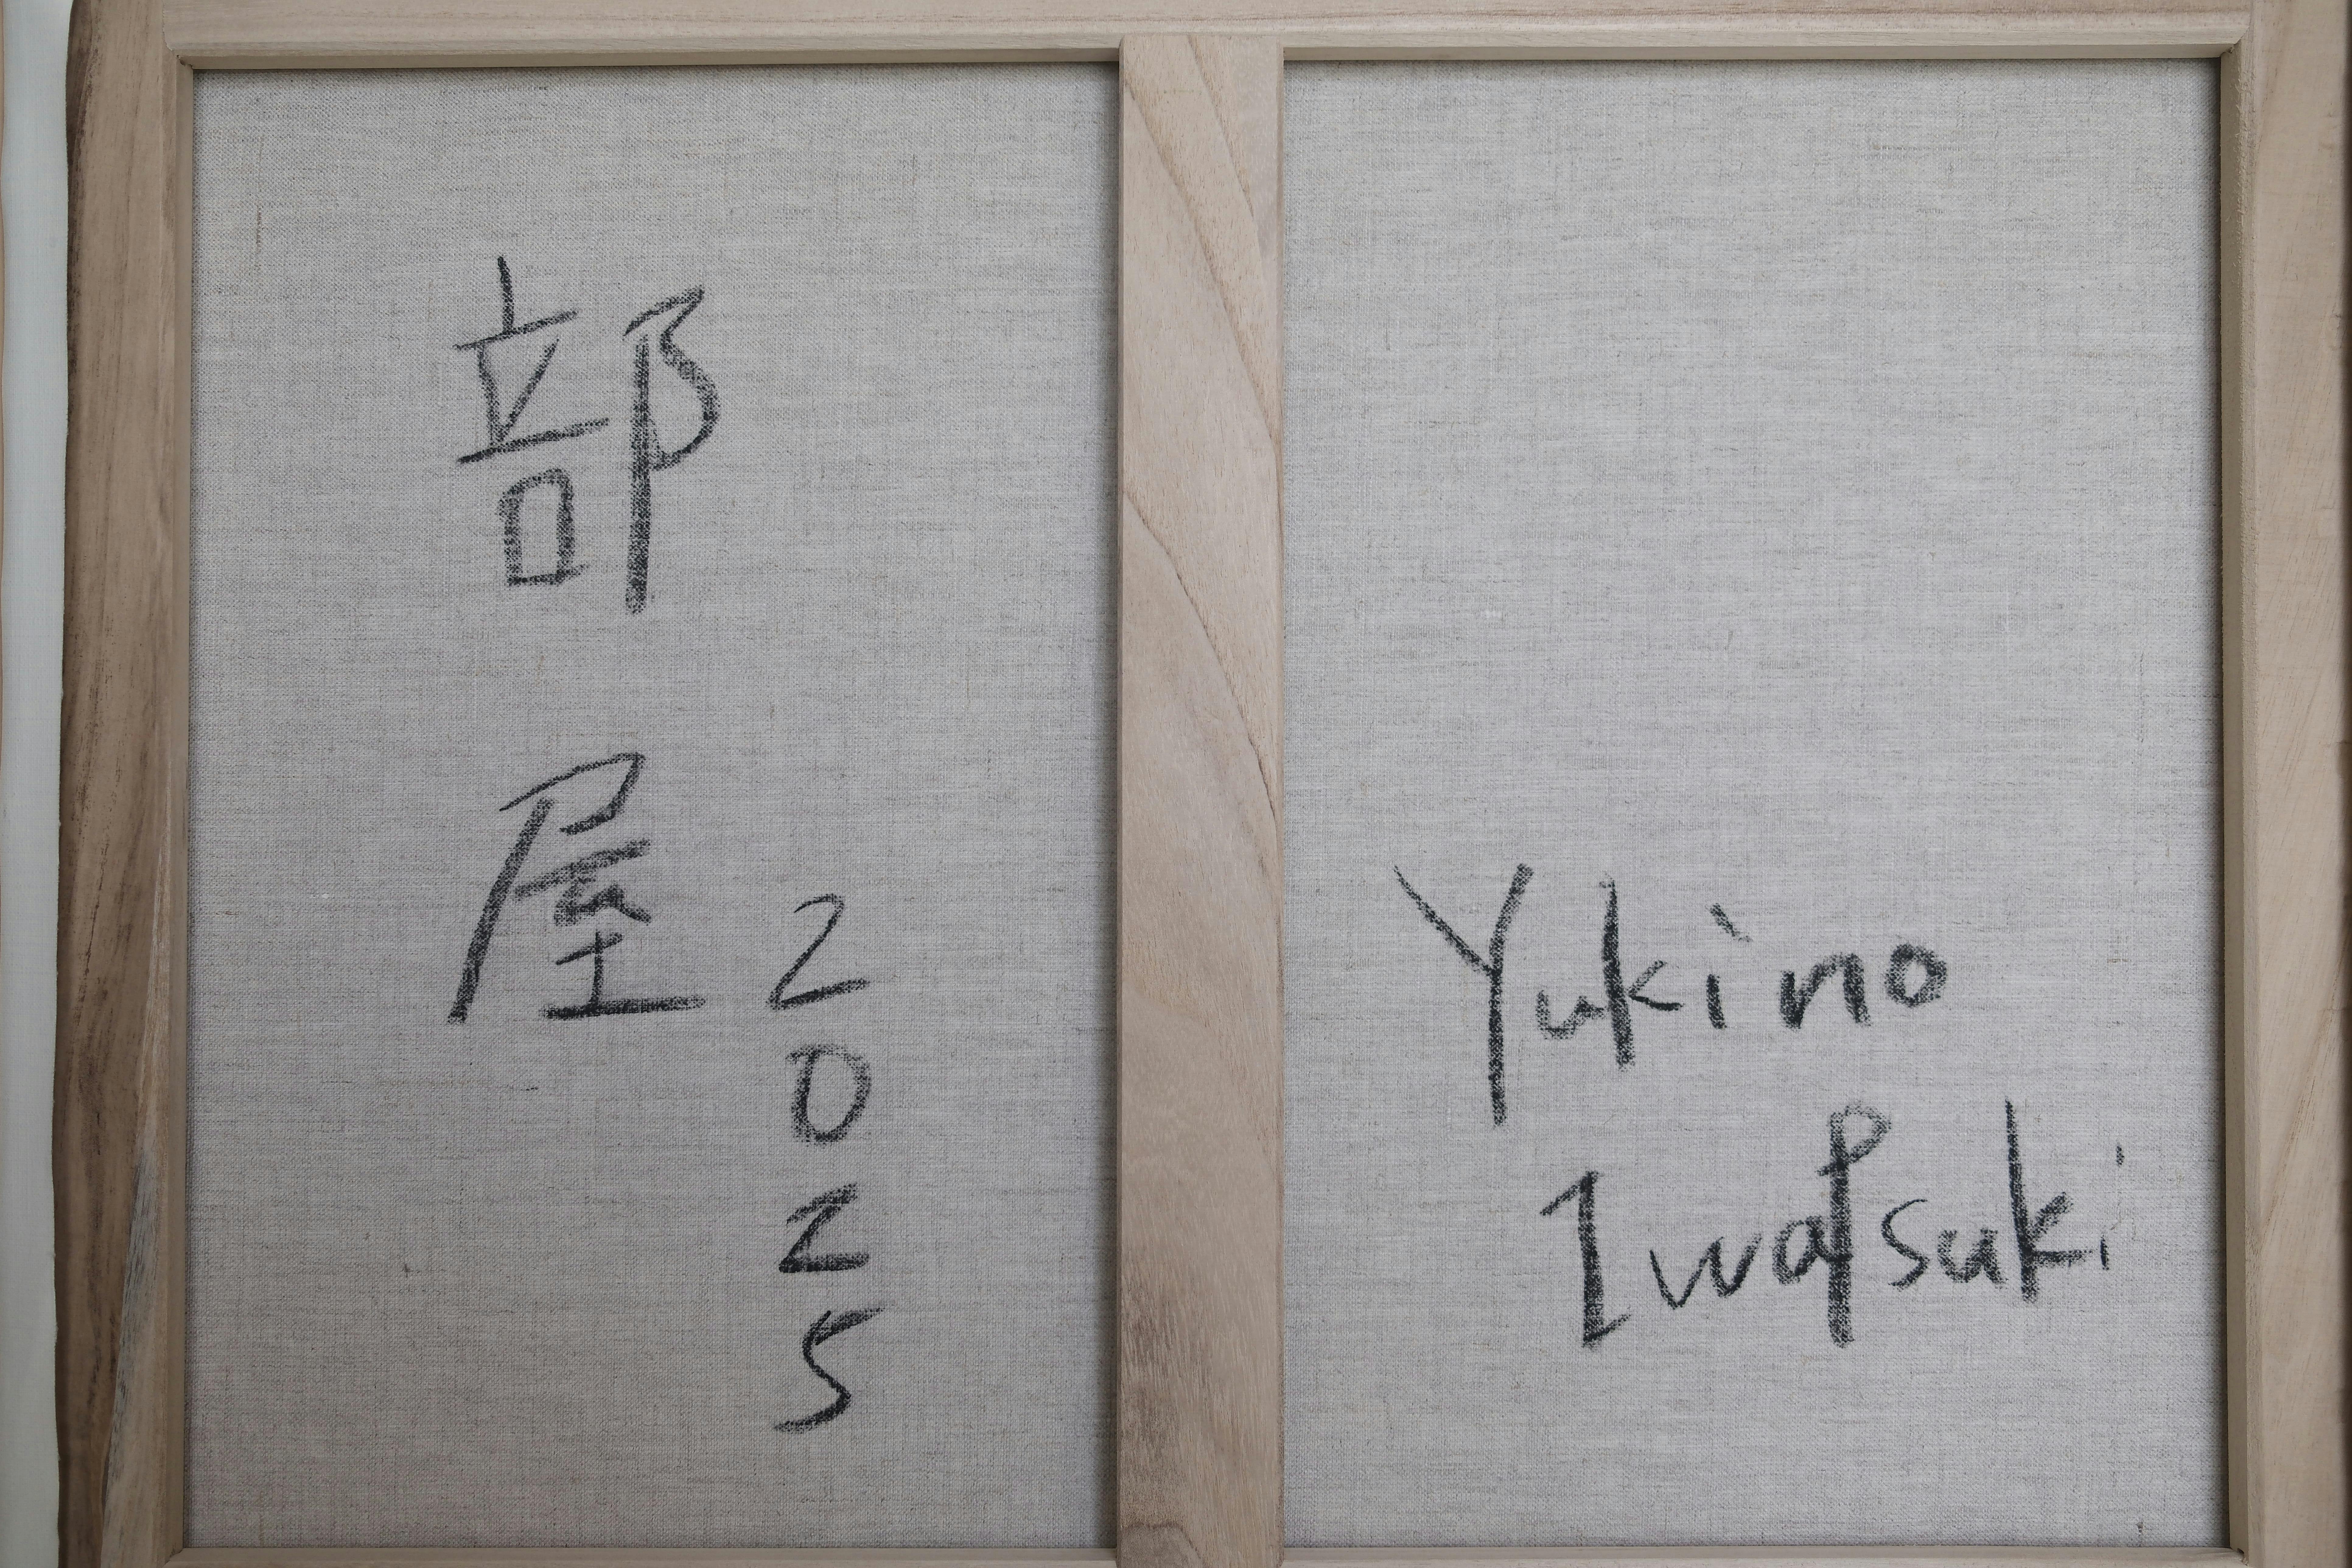 部屋
2025
Yukino
Iwatsuki